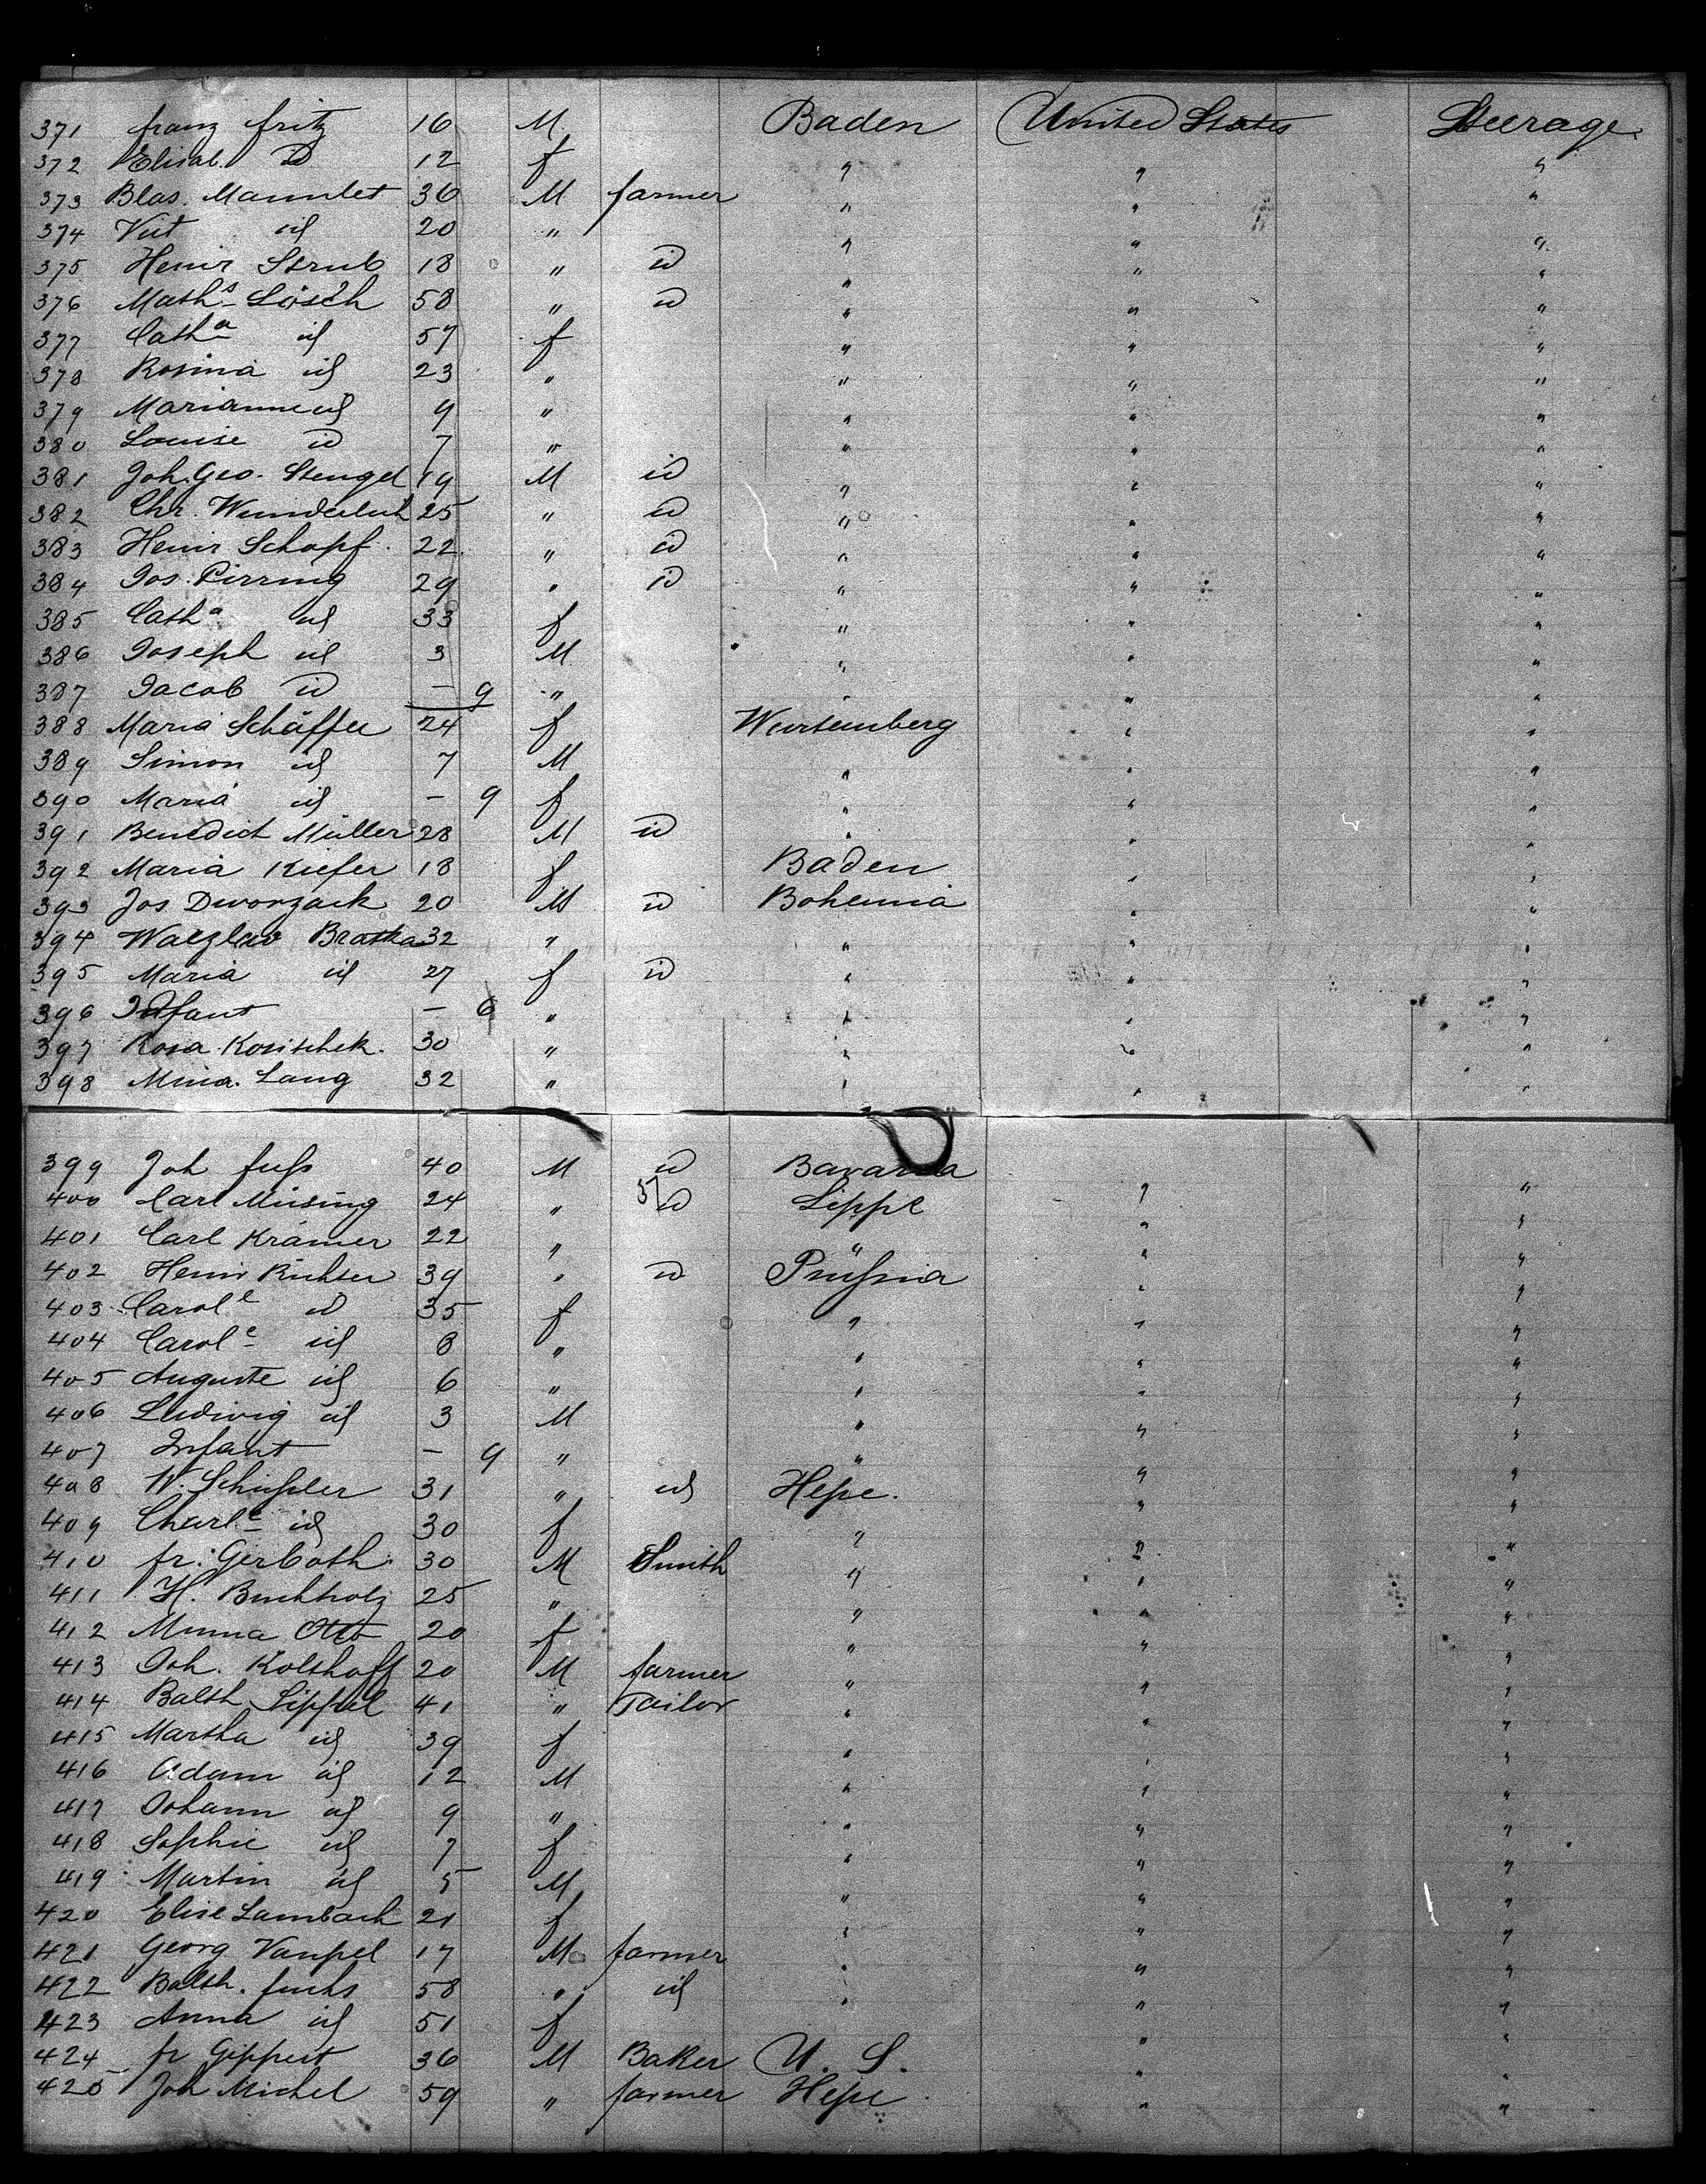 371 franz fritz 16 M. Baden United States Steerage.
372 Elisab. id 12 f " " "
373 Blas. Mannlet 36 M farmer " " "
374 Vit id 20 " " " "
375 Heinr Strub 18 " id " " "
376 Maths Lösch 58 " id " " "
377 Catha id 57 f " " "
378 Rosina id 23 " " " "
379 Marianne id 9 " " " "
380 Louise id 7 " " " "
381 Joh. Geo. Stengel 19 M id " " "
382 Chr. Wunderlich 25 " id " " "
383 Heinr Schopf 22 " id " " "
384 Jos. Pirring 29 " id " " "
385 Catha id 33 f " " "
386 Joseph id 3 M " " "
387 Jacob id — 9 " " " "
388 Maria Schäffer 24 f Wurtemberg " "
389 Simon id 7 M " " "
390 Maria id — 9 f " " "
391 Benedict Müller 28 M id " " "
392 Maria Kiefer 18 f Baden " "
393 Jos Dworzack 20 M id Bohemia " "
394 Waczlav Bratka 32 " " " "
395 Maria id 27 f id " " "
396 Infant — 6 " " " "
397 Rosa Kosischek. 30 " " " "
398 Mina. Lang 32 " " " "
399 Joh fuss 40 M id Bavaria " "
400 Carl Müsing 24 " id Lippe " "
401 Carl Krämer 22 " " " "
402 Heinr Richter 39 " id Prussia " "
403 Carole id 35 f " " "
404 Carole id 8 " " " "
405 Auguste id 6 " " " "
406 Ludwig id 3 M " " "
407 Infant — 9 " " " "
408 W. Schüssler 31 " id Hesse. " "
409 Charle id 30 f " " "
410 fr. Gerboth 30 M Smith " " "
411 H. Buchholz 25 " " " "
412 Minna Otto 20 f " " "
413 Joh. Kolthoff 20 M farmer " " "
414 Balth Lippel 41 " Tailor " " "
415 Martha id 39 f " " "
416 Adam id 12 M " " "
417 Johann id 9 " " " "
418 Sophie id 7 f " " "
419 Martin id 5 M " " "
420 Elise Lambach 21 f " " "
421 Georg Vaupel 17 M farmer " " "
422 Balth. fuchs 58 " id " " "
423 Anna id 51 f " " "
424 fr Gippert 36 M Baker U. S. " "
425 Joh Michel 59 " farmer Hesse " "